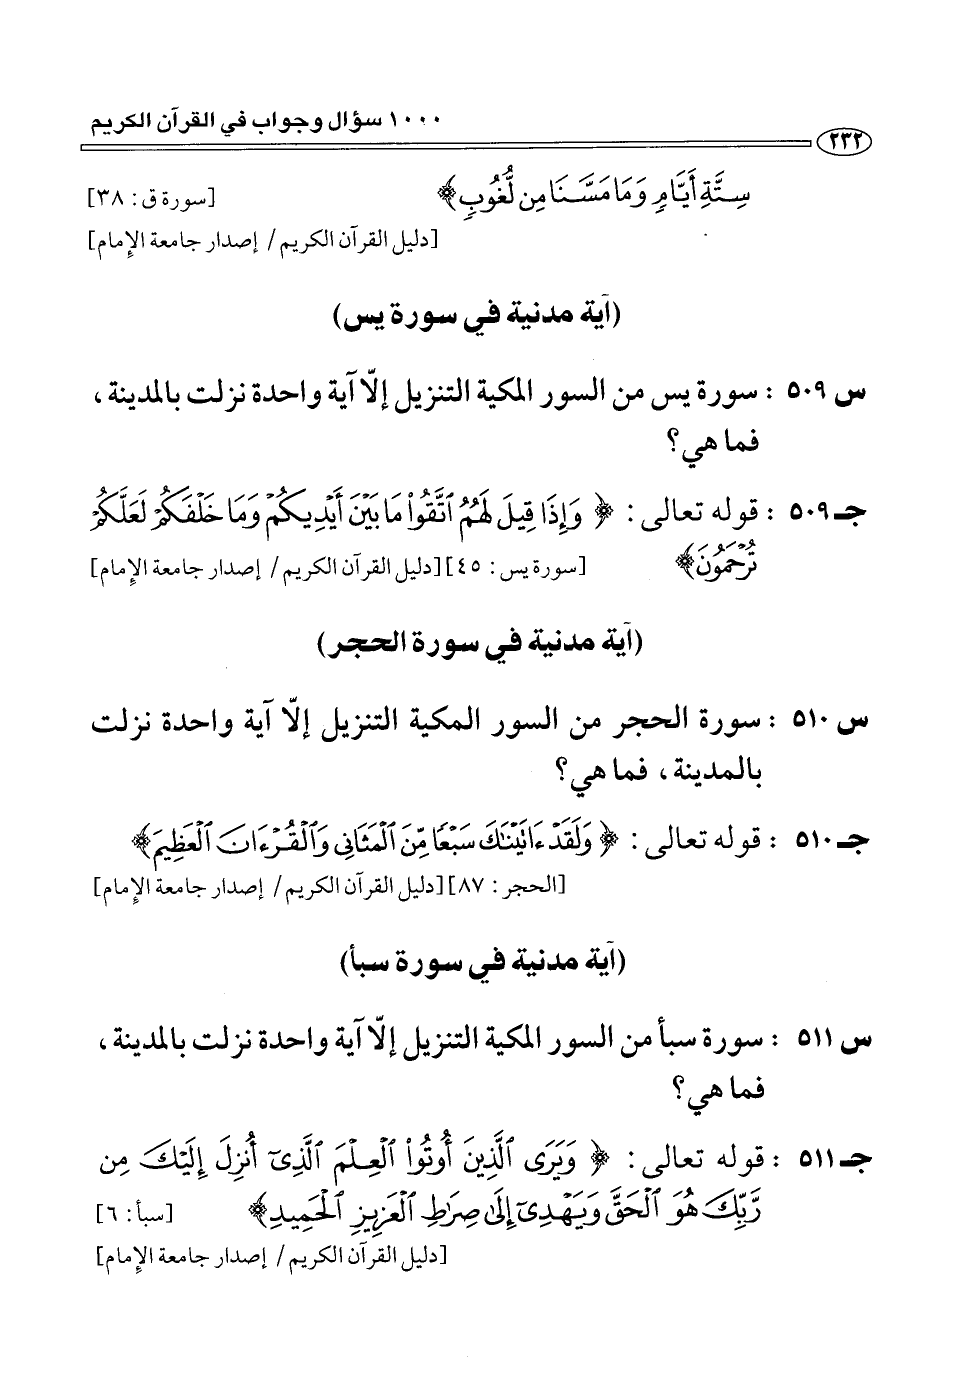 ١٠٠٠ سؤال وجواب في القرآن الكريم
٢٣٢
سِتَّةِ أَيَّامٍ وَمَا مَسَّنَا مِن لُّغُوبٍ﴾ [سورة ق: ٣٨]
[دليل القرآن الكريم/ إصدار جامعة الإمام]
(آية مدنية في سورة يس)
س ٥٠٩ : سورة يس من السور المكية التنزيل إلاّ آية واحدة نزلت بالمدينة،
فما هي؟
جـ ٥٠٩ : قوله تعالى: ﴿ وَإِذَا قِيلَ لَهُمُ ٱتَّقُوا۟ مَا بَيْنَ أَيْدِيكُمْ وَمَا خَلْفَكُمْ لَعَلَّكُمْ
تُرْحَمُونَ﴾ [سورة يس: ٤٥] [دليل القرآن الكريم/ إصدار جامعة الإمام]
(آية مدنية في سورة الحجر)
س ٥١٠ : سورة الحجر من السور المكية التنزيل إلاّ آية واحدة نزلت
بالمدينة، فما هي؟
جـ ٥١٠ : قوله تعالى: ﴿ وَلَقَدْ ءَاتَيْنَٰكَ سَبْعًا مِّنَ ٱلْمَثَانِى وَٱلْقُرْءَانَ ٱلْعَظِيمَ﴾
[الحجر: ٨٧] [دليل القرآن الكريم/ إصدار جامعة الإمام]
(آية مدنية في سورة سبأ)
س ٥١١ : سورة سبأ من السور المكية التنزيل إلاّ آية واحدة نزلت بالمدينة،
فما هي؟
جـ ٥١١ : قوله تعالى: ﴿ وَيَرَى ٱلَّذِينَ أُوتُوا۟ ٱلْعِلْمَ ٱلَّذِىٓ أُنزِلَ إِلَيْكَ مِن
رَّبِّكَ هُوَ ٱلْحَقَّ وَيَهْدِىٓ إِلَىٰ صِرَٰطِ ٱلْعَزِيزِ ٱلْحَمِيدِ﴾ [سبأ: ٦]
[دليل القرآن الكريم/ إصدار جامعة الإمام]